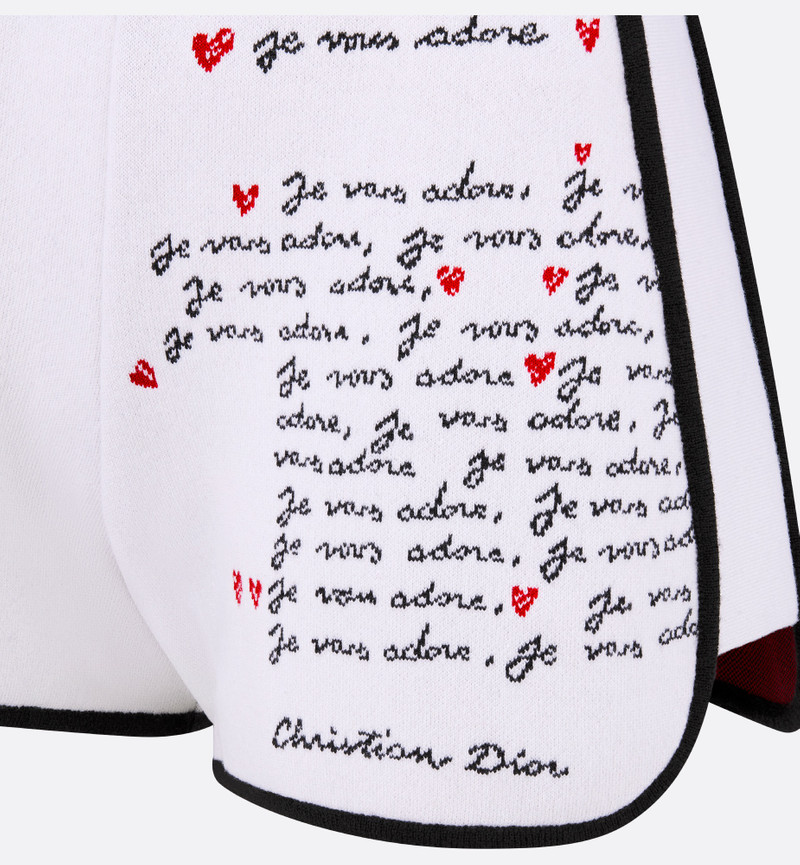 Je vous adore
Je vous adore, Je v
Je vous adore, Je vous adore,
Je vous adore, Je v
Je vous adore, Je vous adore,
Je vous adore Je vous
adore, Je vous adore, Je
vous adore Je vous adore,
Je vous adore, Je vous ad
Je vous adore, Je vous ad
Je vous adore, Je vous
Je vous adore, Je vous ado
Christian Dior